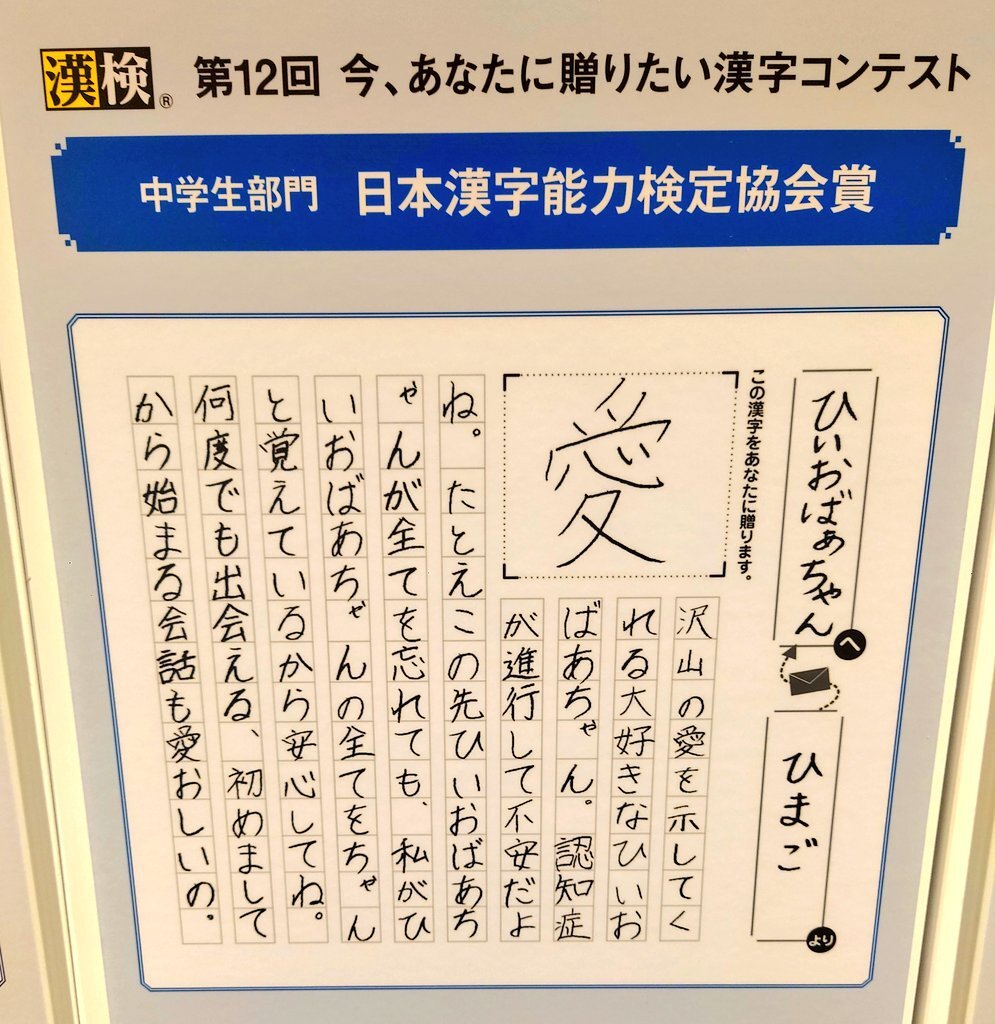 漢検®
第12回 今、あなたに贈りたい漢字コンテスト
中学生部門 日本漢字能力検定協会賞
ひいおばあちゃん
へ
ひまご
より
この漢字をあなたに贈ります。
愛
沢山の愛を示してく
れる大好きなひいお
ばあちゃん。認知症
が進行して不安だよ
ね。たとえこの先ひいおばあち
ゃんが全てを忘れても、私がひ
いおばあちゃんの全てをちゃん
と覚えているから安心してね。
何度でも出会える、初めまして
から始まる会話も愛おしいの。